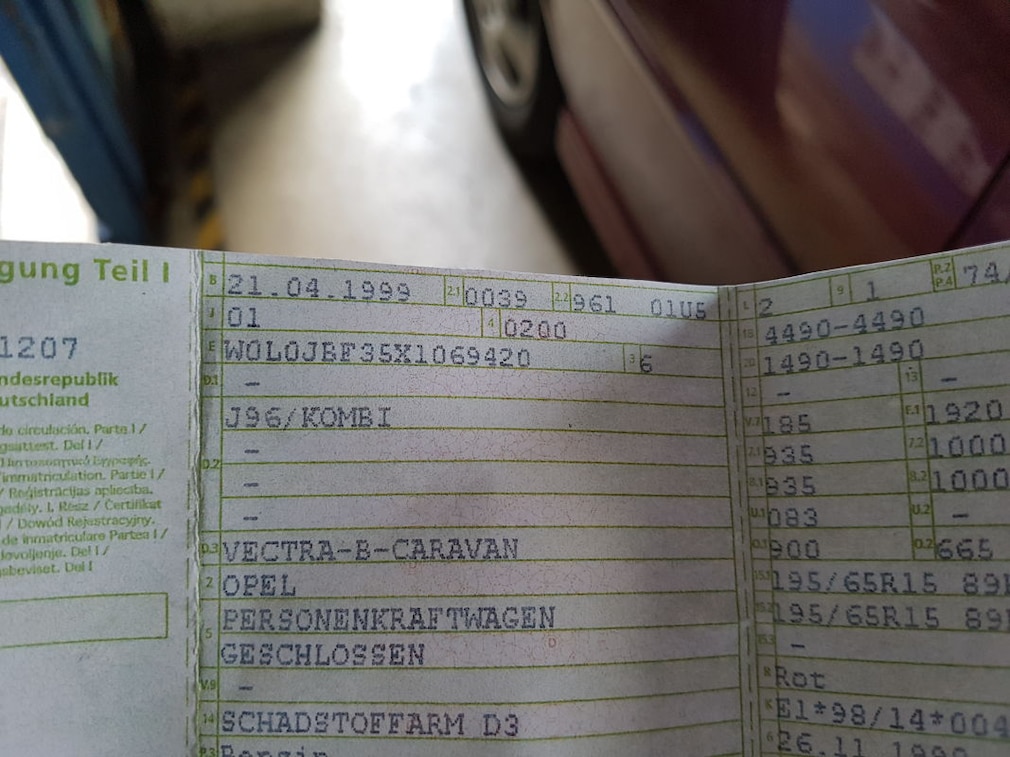 gung Teil I
1207
ndesrepublik
utschland
de circulación. Parte I /
gsattest. Del I /
immatriculation. Partie I /
/ Reģistrācijas apliecība.
gedély. I. Rész / Certifikat
I / Dowód Rejestracyjny.
de inmatriculare Partea I /
dovoljenje. Del I /
gsbeviset. Del I
B 21.04.1999 2.1 0039 2.2 961 01U5
J 01 4 0200
E W0L0JBF35X1069420 3 6
D.1 –
J96/KOMBI
–
D.2 –
–
D.3 VECTRA-B-CARAVAN
2 OPEL
5 PERSONENKRAFTWAGEN
GESCHLOSSEN
V.9 –
14 SCHADSTOFFARM D3
P.3 Benzin
L 2 9 1 P.2 P.4 74/
18 4490-4490
20 1490-1490
12 – 13 –
V.7 185 F.1 1920
7.1 935 7.2 1000
8.1 935 8.2 1000
U.1 083 U.2 –
O.1 900 O.2 665
15.1 195/65R15 89
15.2 195/65R15 89
15.3 –
R Rot
K E1*98/14*004
6 26.11.1998